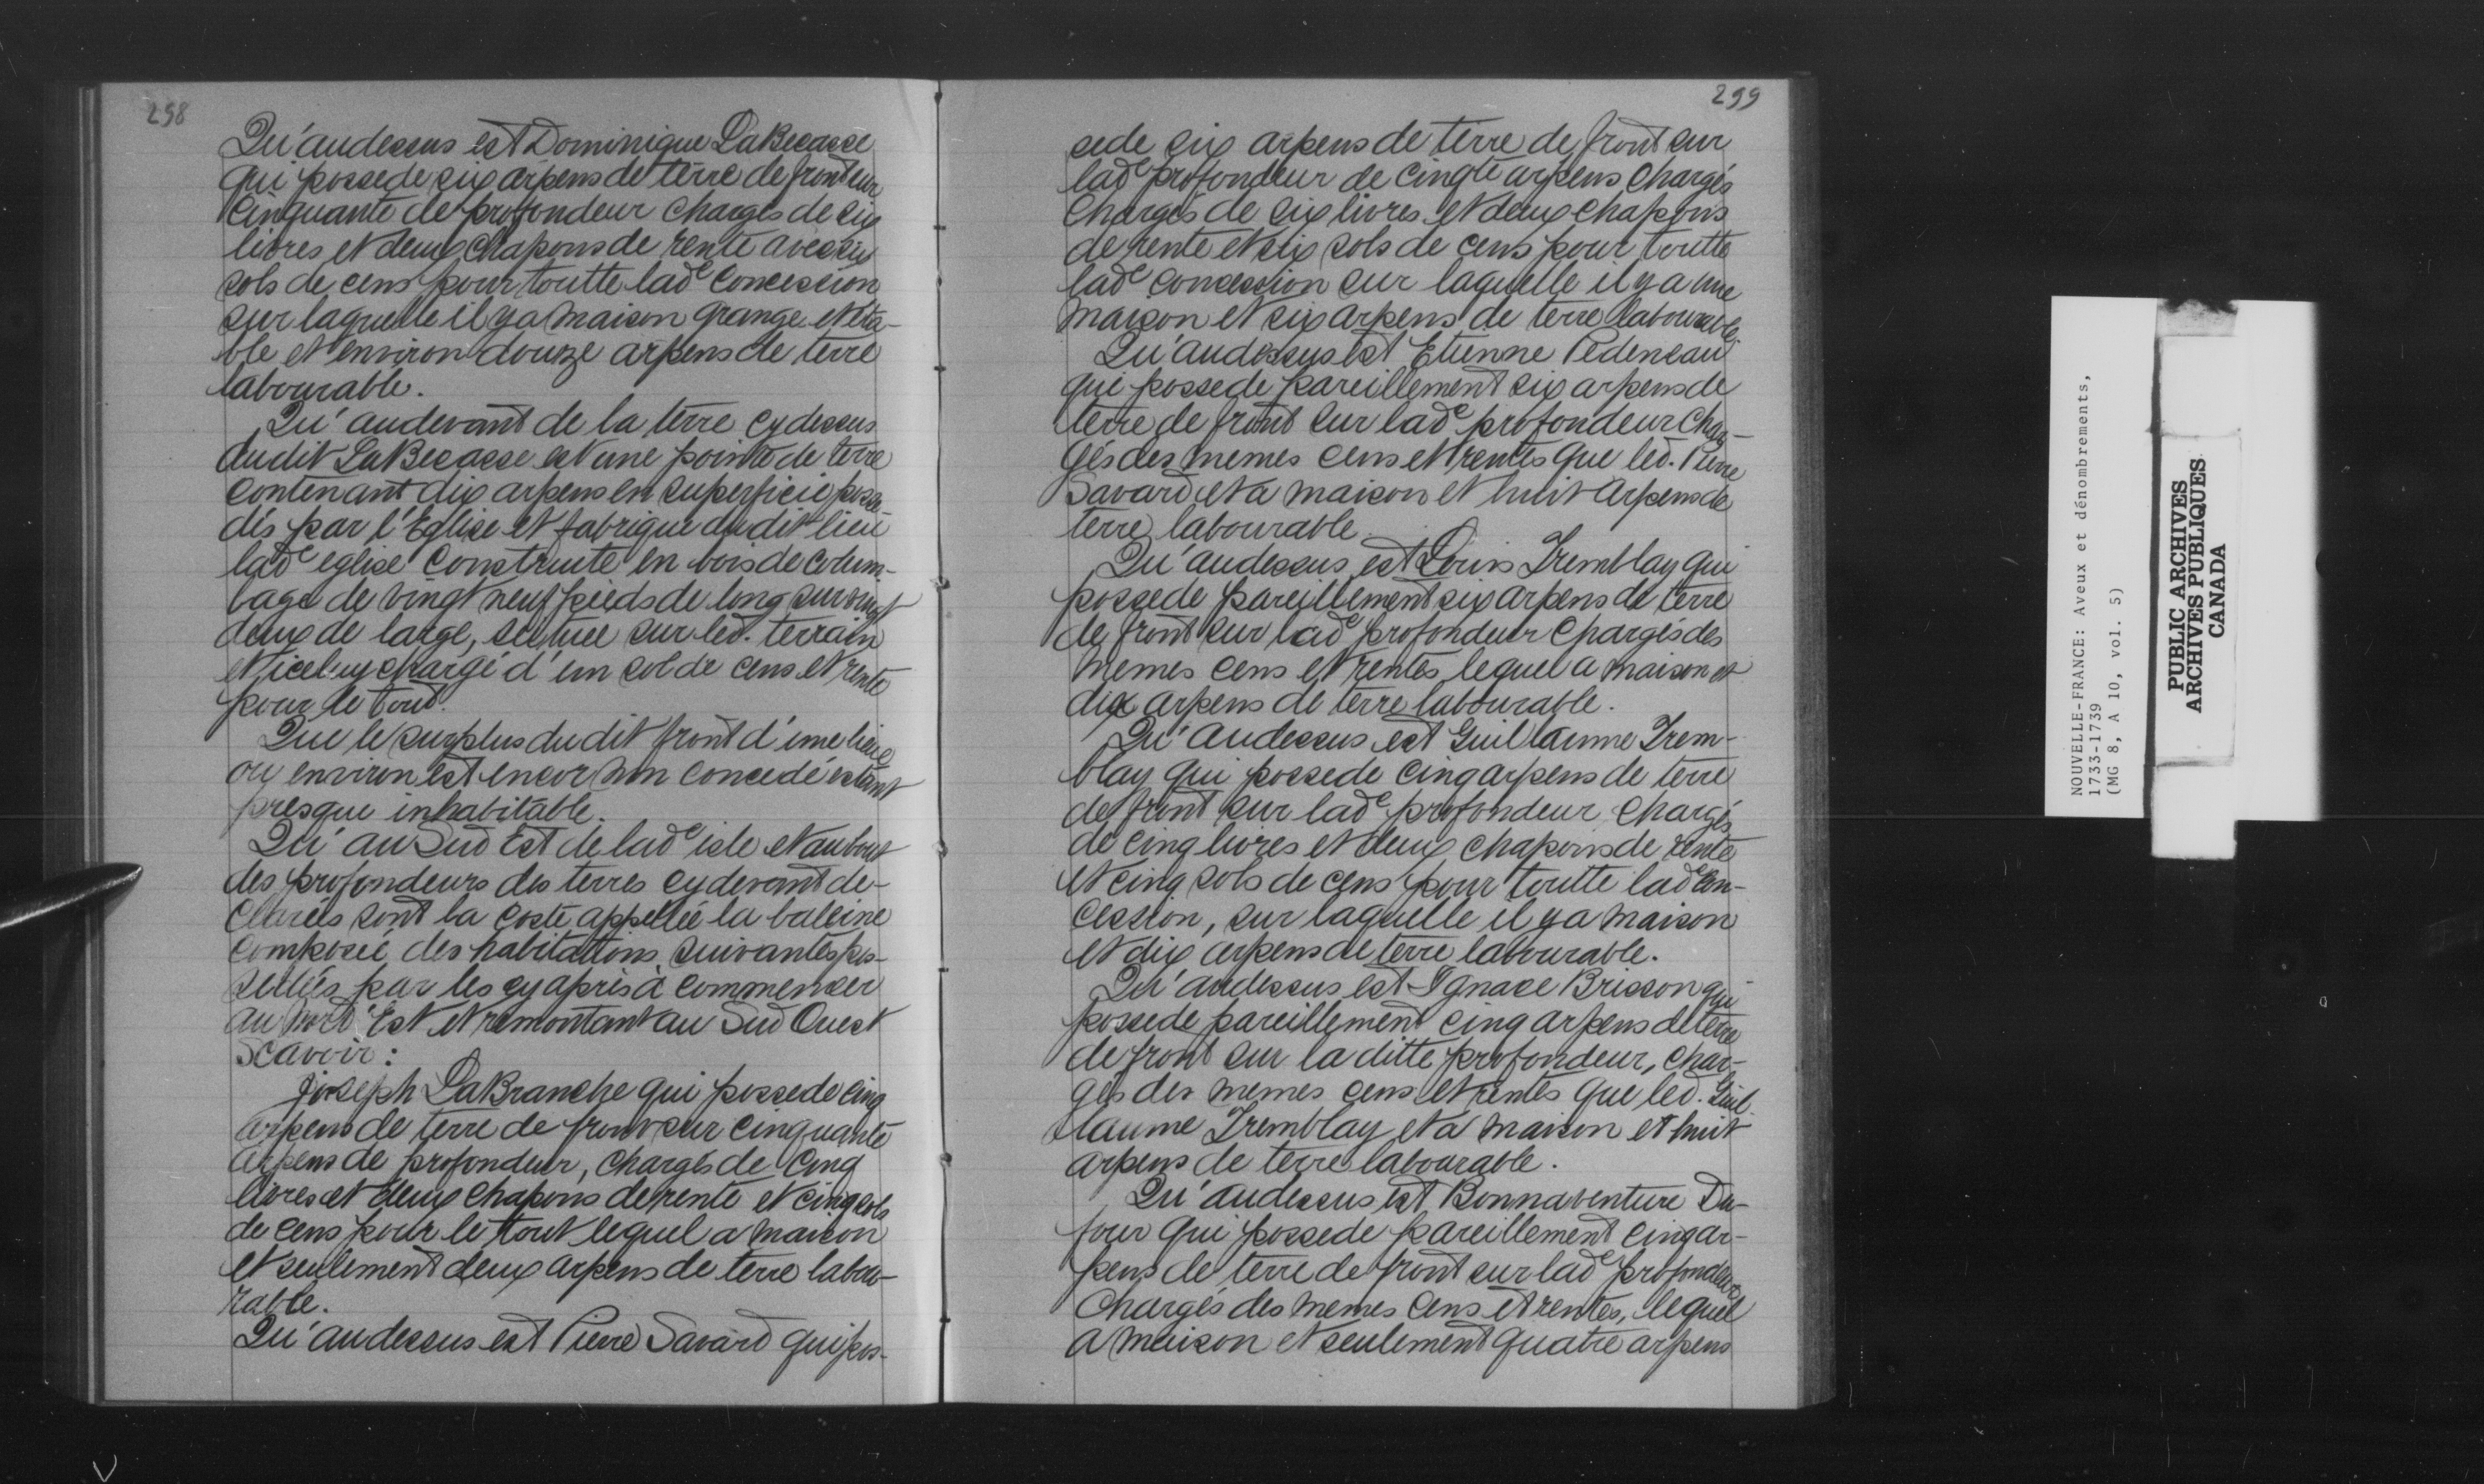 298
Qu'audessus est Dominique LaBecasse
qui possede six arpens de terre de front sur
Cinquante de profondeur chargés de six
livres et deux chapons de rente avec six
sols de cens pour toutte lade Concession
sur laquelle il y a maison grange et éta-
ble et environ douze arpens de terre
labourable.
Qu'audevant de la terre cy dessus
dudit LaBecasse est une pointe de terre
contenant dix arpens en superficie possé-
dés par l'Eglise et fabrique du dit lieu
lade eglise construite en bois de colom-
bage de vingt neuf pieds de long sur vingt
deux de large, scituée sur led. terrain
et iceluy chargé d'un sol de cens et rente
pour le tout.
Que le surplus du dit front d'une lieue
ou environ est encor non concedé estant
presque inhabitable.
Qu'au Sud Est de lade isle et au bout
des profondeurs des terres cy devant de-
clarées sont la coste appellée la baleine
composée des habitations suivantes pos-
sedées par les cy après à commencer
au Nord Est et remontant au Sud Ouest
Scavoir :
Joseph LaBranche qui possede cinq
arpens de terre de front sur cinquante
arpens de profondeur, chargés de Cinq
livres et deux chapons de rente et cinq sols
de cens pour le tout lequel a maison
et seulement deux arpens de terre labou-
rable.
Qu'audessus est Pierre Savard qui pos-
299
sede six arpens de terre de front sur
lade profondeur de cinqte arpens chargés
chargés de six livres et deux chapons
de rente et six sols de cens pour toutte
lade concession sur laquelle il y a une
maison et six arpens de terre labourable.
Qu'audessus est Etienne Pedeneau
qui possede pareillement six arpens de
terre de front sur lade profondeur char-
gés des memes cens et rentes que led. Pierre
Savard et a maison et huit arpens de
terre labourable.
Qu'audessus est Louis Tremblay qui
possede pareillement six arpens de terre
de front sur lade profondeur chargés des
memes cens et rentes lequel a maison et
dix arpens de terre labourable.
Qu'audessus est Guillaume Trem-
blay qui possede cinq arpens de terre
de front sur lade profondeur chargés
de cinq livres et deux chapons de rente
et cinq sols de cens pour toutte lade con-
cession, sur laquelle il y a maison
et dix arpens de terre labourable.
Qu'audessus est Ignace Brisson qui
possede pareillement cinq arpens de terre
de front sur la ditte profondeur, char-
gés des memes cens et rentes que led. Guil-
laume Tremblay et a maison et huit
arpens de terre labourable.
Qu'audessus est Bonnaventure Du-
four qui possede pareillement cinq ar-
pens de terre de front sur lade profondeur
chargés des memes cens et rentes, lequel
a maison et seulement quatre arpens
NOUVELLE-FRANCE: Aveux et dénombrements,
1733-1739
(MG 8, A 10, vol. 5)
PUBLIC ARCHIVES
ARCHIVES PUBLIQUES
CANADA